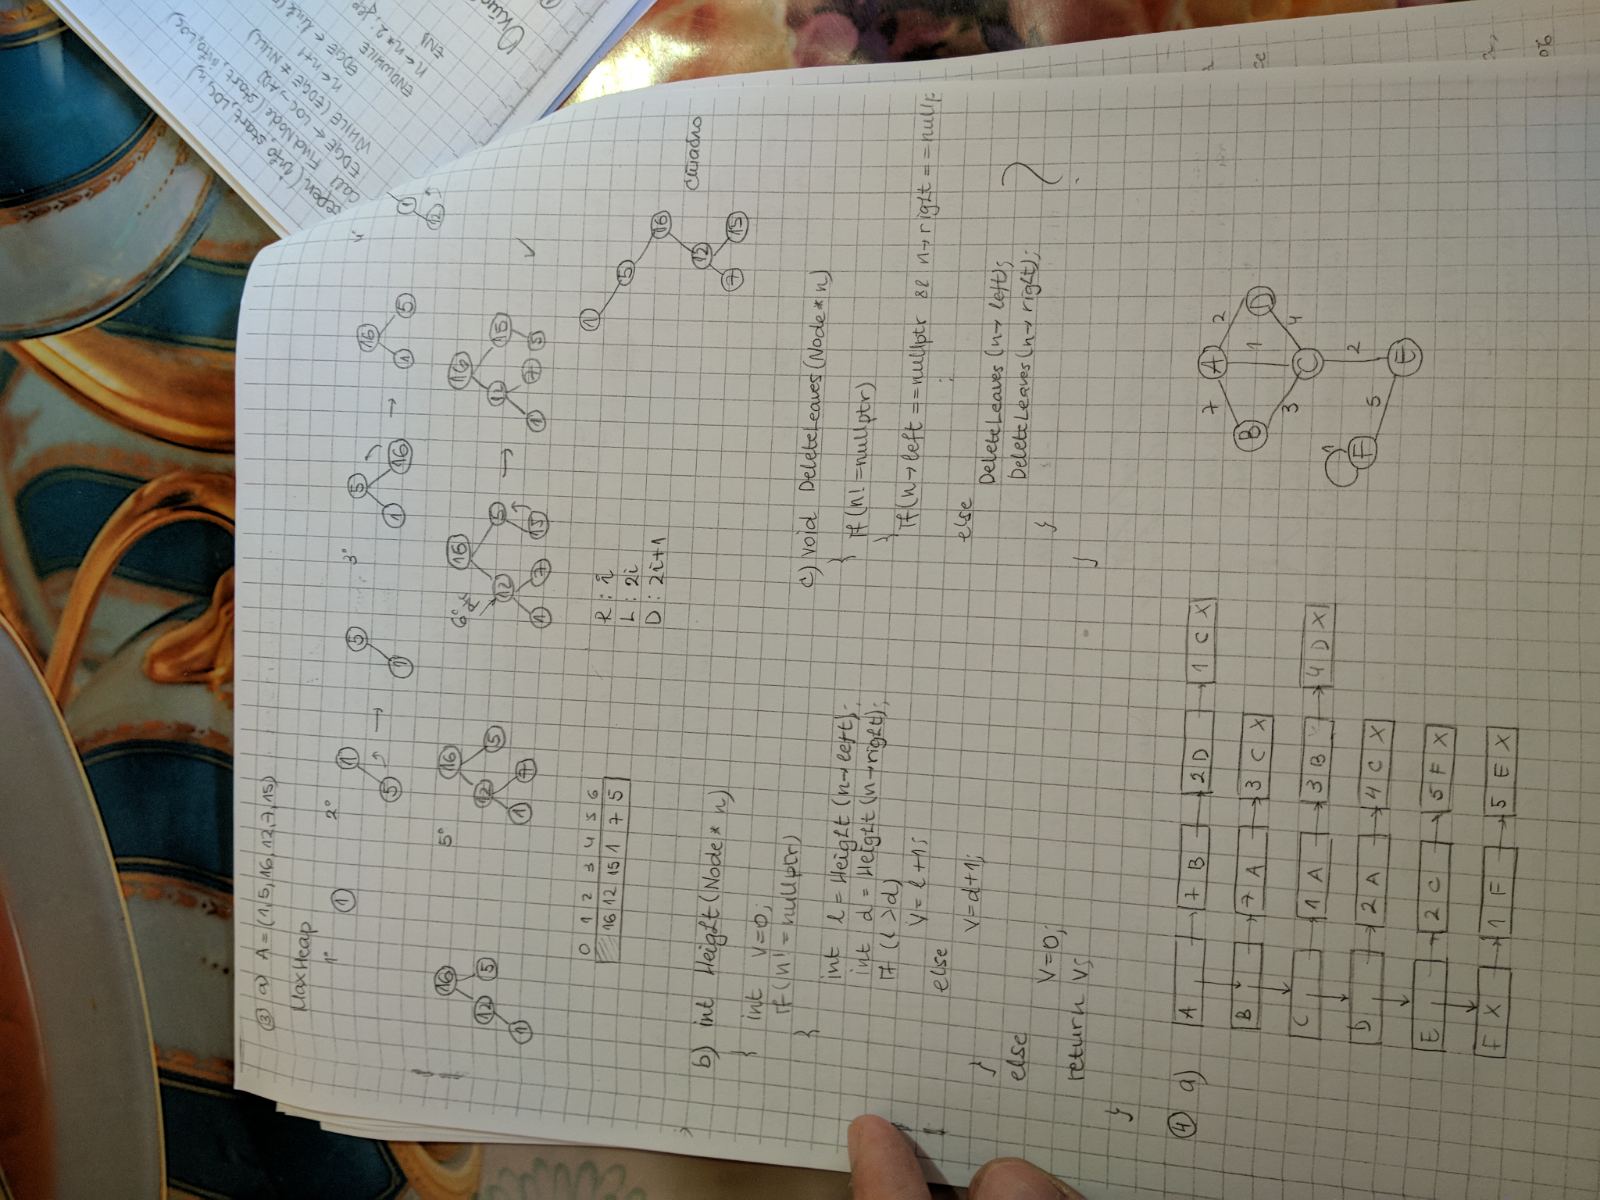 ③ a) A = (1,5,16,12,7,15)
MaxHeap
1° 1
2° 1 5 → 5 1
3° 5 1 16 → 16 1 5
4° 1 12
16 12 5 1
5° 16 12 5 1 7
6° 16 12 5 1 7 15 → 16 12 15 1 7 5 ✓
0 1 2 3 4 5 6
16 12 15 1 7 5
R : i
L : 2i
D : 2i+1
1 5 16 12 7 15
стабло
b) int Height (Node* n)
{
int v=0;
if (n != nullptr)
{
int l = Height (n→left);
int d = Height (n→right);
if (l >d)
v= l+1;
else
v=d+1;
}
else
v=0;
return v;
}
c) void DeleteLeaves (Node* n)
{
if (n! =nullptr)
{
if (n→left ==nullptr && n→right ==nullp
;
else
DeleteLeaves (n→ left);
DeleteLeaves (n→ right);
}
}
?
④ a)
A → 7 B → 2 D → 1 C X
B → 7 A → 3 C X
C → 1 A → 3 B → 4 D X
D → 2 A → 4 C X
E → 2 C → 5 F X
F X → 1 F → 5 E X
7 A 2
B 1 D
3 C 4
1 F 5 2 E
(info, start, LOC, n)
Call FindNode (start, info, LOC)
EDGE ← LOC→ADJ
WHILE (EDGE ≠ NULL)
n ← n+1
EDGE ← link
ENDWHILE
n ← n*2;
END